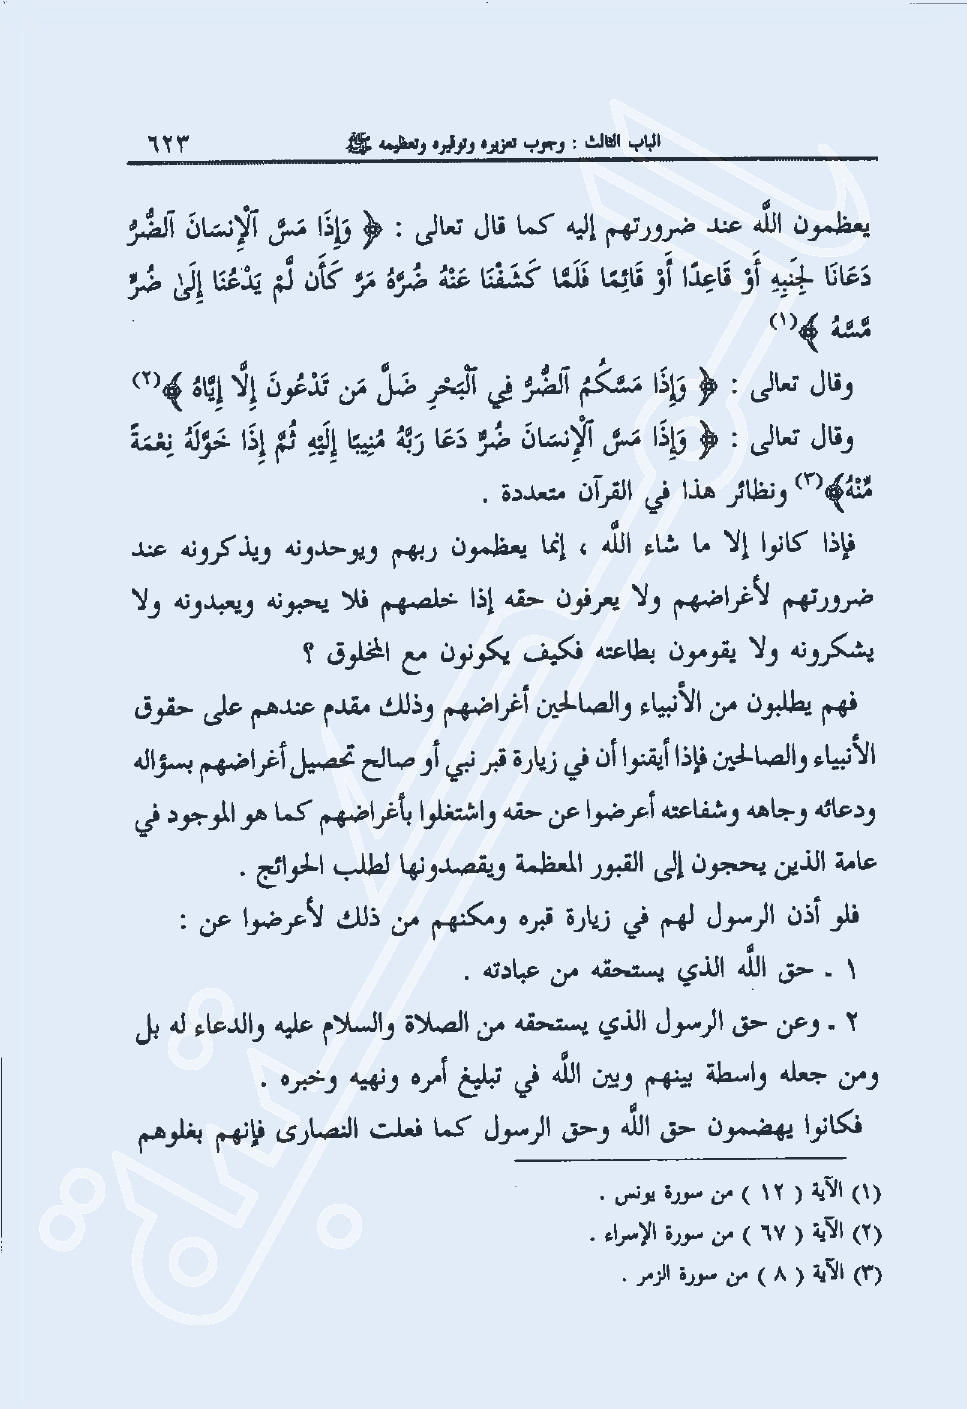 الباب الثالث : وجوب تعزيره وتوقيره وتعظيمه ﷺ ٦٢٣
يعظمون اللَّه عند ضرورتهم إليه كما قال تعالى : ﴿ وَإِذَا مَسَّ ٱلْإِنسَانَ ٱلضُّرُّ
دَعَانَا لِجَنبِهِ أَوْ قَاعِدًا أَوْ قَائِمًا فَلَمَّا كَشَفْنَا عَنْهُ ضُرَّهُ مَرَّ كَأَن لَّمْ يَدْعُنَا إِلَىٰ ضُرٍّ
مَّسَّهُ ﴾(١)
وقال تعالى : ﴿ وَإِذَا مَسَّكُمُ ٱلضُّرُّ فِي ٱلْبَحْرِ ضَلَّ مَن تَدْعُونَ إِلَّا إِيَّاهُ ﴾(٢)
وقال تعالى : ﴿ وَإِذَا مَسَّ ٱلْإِنسَانَ ضُرٌّ دَعَا رَبَّهُ مُنِيبًا إِلَيْهِ ثُمَّ إِذَا خَوَّلَهُ نِعْمَةً
مِّنْهُ﴾(٣) ونظائر هذا في القرآن متعددة .
فإذا كانوا إلا ما شاء اللَّه ، إنما يعظمون ربهم ويوحدونه ويذكرونه عند
ضرورتهم لأغراضهم ولا يعرفون حقه إذا خلصهم فلا يحبونه ويعبدونه ولا
يشكرونه ولا يقومون بطاعته فكيف يكونون مع المخلوق ؟
فهم يطلبون من الأنبياء والصالحين أغراضهم وذلك مقدم عندهم على حقوق
الأنبياء والصالحين فإذا أيقنوا أن في زيارة قبر نبي أو صالح تحصيل أغراضهم بسؤاله
ودعائه وجاهه وشفاعته أعرضوا عن حقه واشتغلوا بأغراضهم كما هو الموجود في
عامة الذين يحجون إلى القبور المعظمة ويقصدونها لطلب الحوائج .
فلو أذن الرسول لهم في زيارة قبره ومكنهم من ذلك لأعرضوا عن :
١ ـ حق اللَّه الذي يستحقه من عبادته .
٢ ـ وعن حق الرسول الذي يستحقه من الصلاة والسلام عليه والدعاء له بل
ومن جعله واسطة بينهم وبين اللَّه في تبليغ أمره ونهيه وخبره .
فكانوا يهضمون حق اللَّه وحق الرسول كما فعلت النصارى فإنهم بغلوهم
(١) الآية ( ١٢ ) من سورة يونس .
(٢) الآية ( ٦٧ ) من سورة الإسراء .
(٣) الآية ( ٨ ) من سورة الزمر .